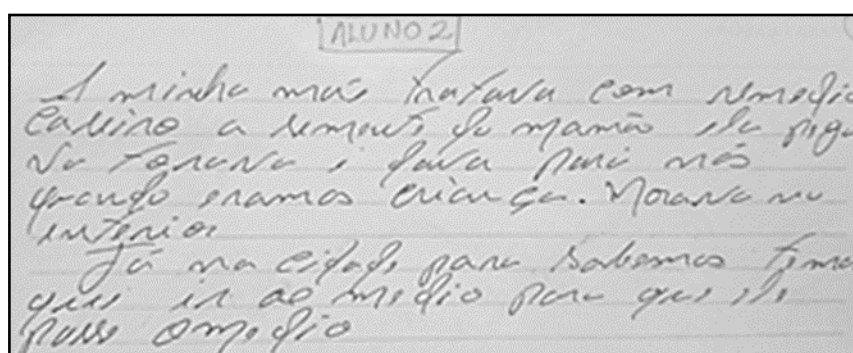 ALUNO 2
A minha mãe tratava com remedio
caseiro a semente do mamão ela pega
va torava e dava para nós
quando eramos criança. Morava no
interior
Já na cidade para sabemos temo
que ir ao medio para que ele
passe o medio